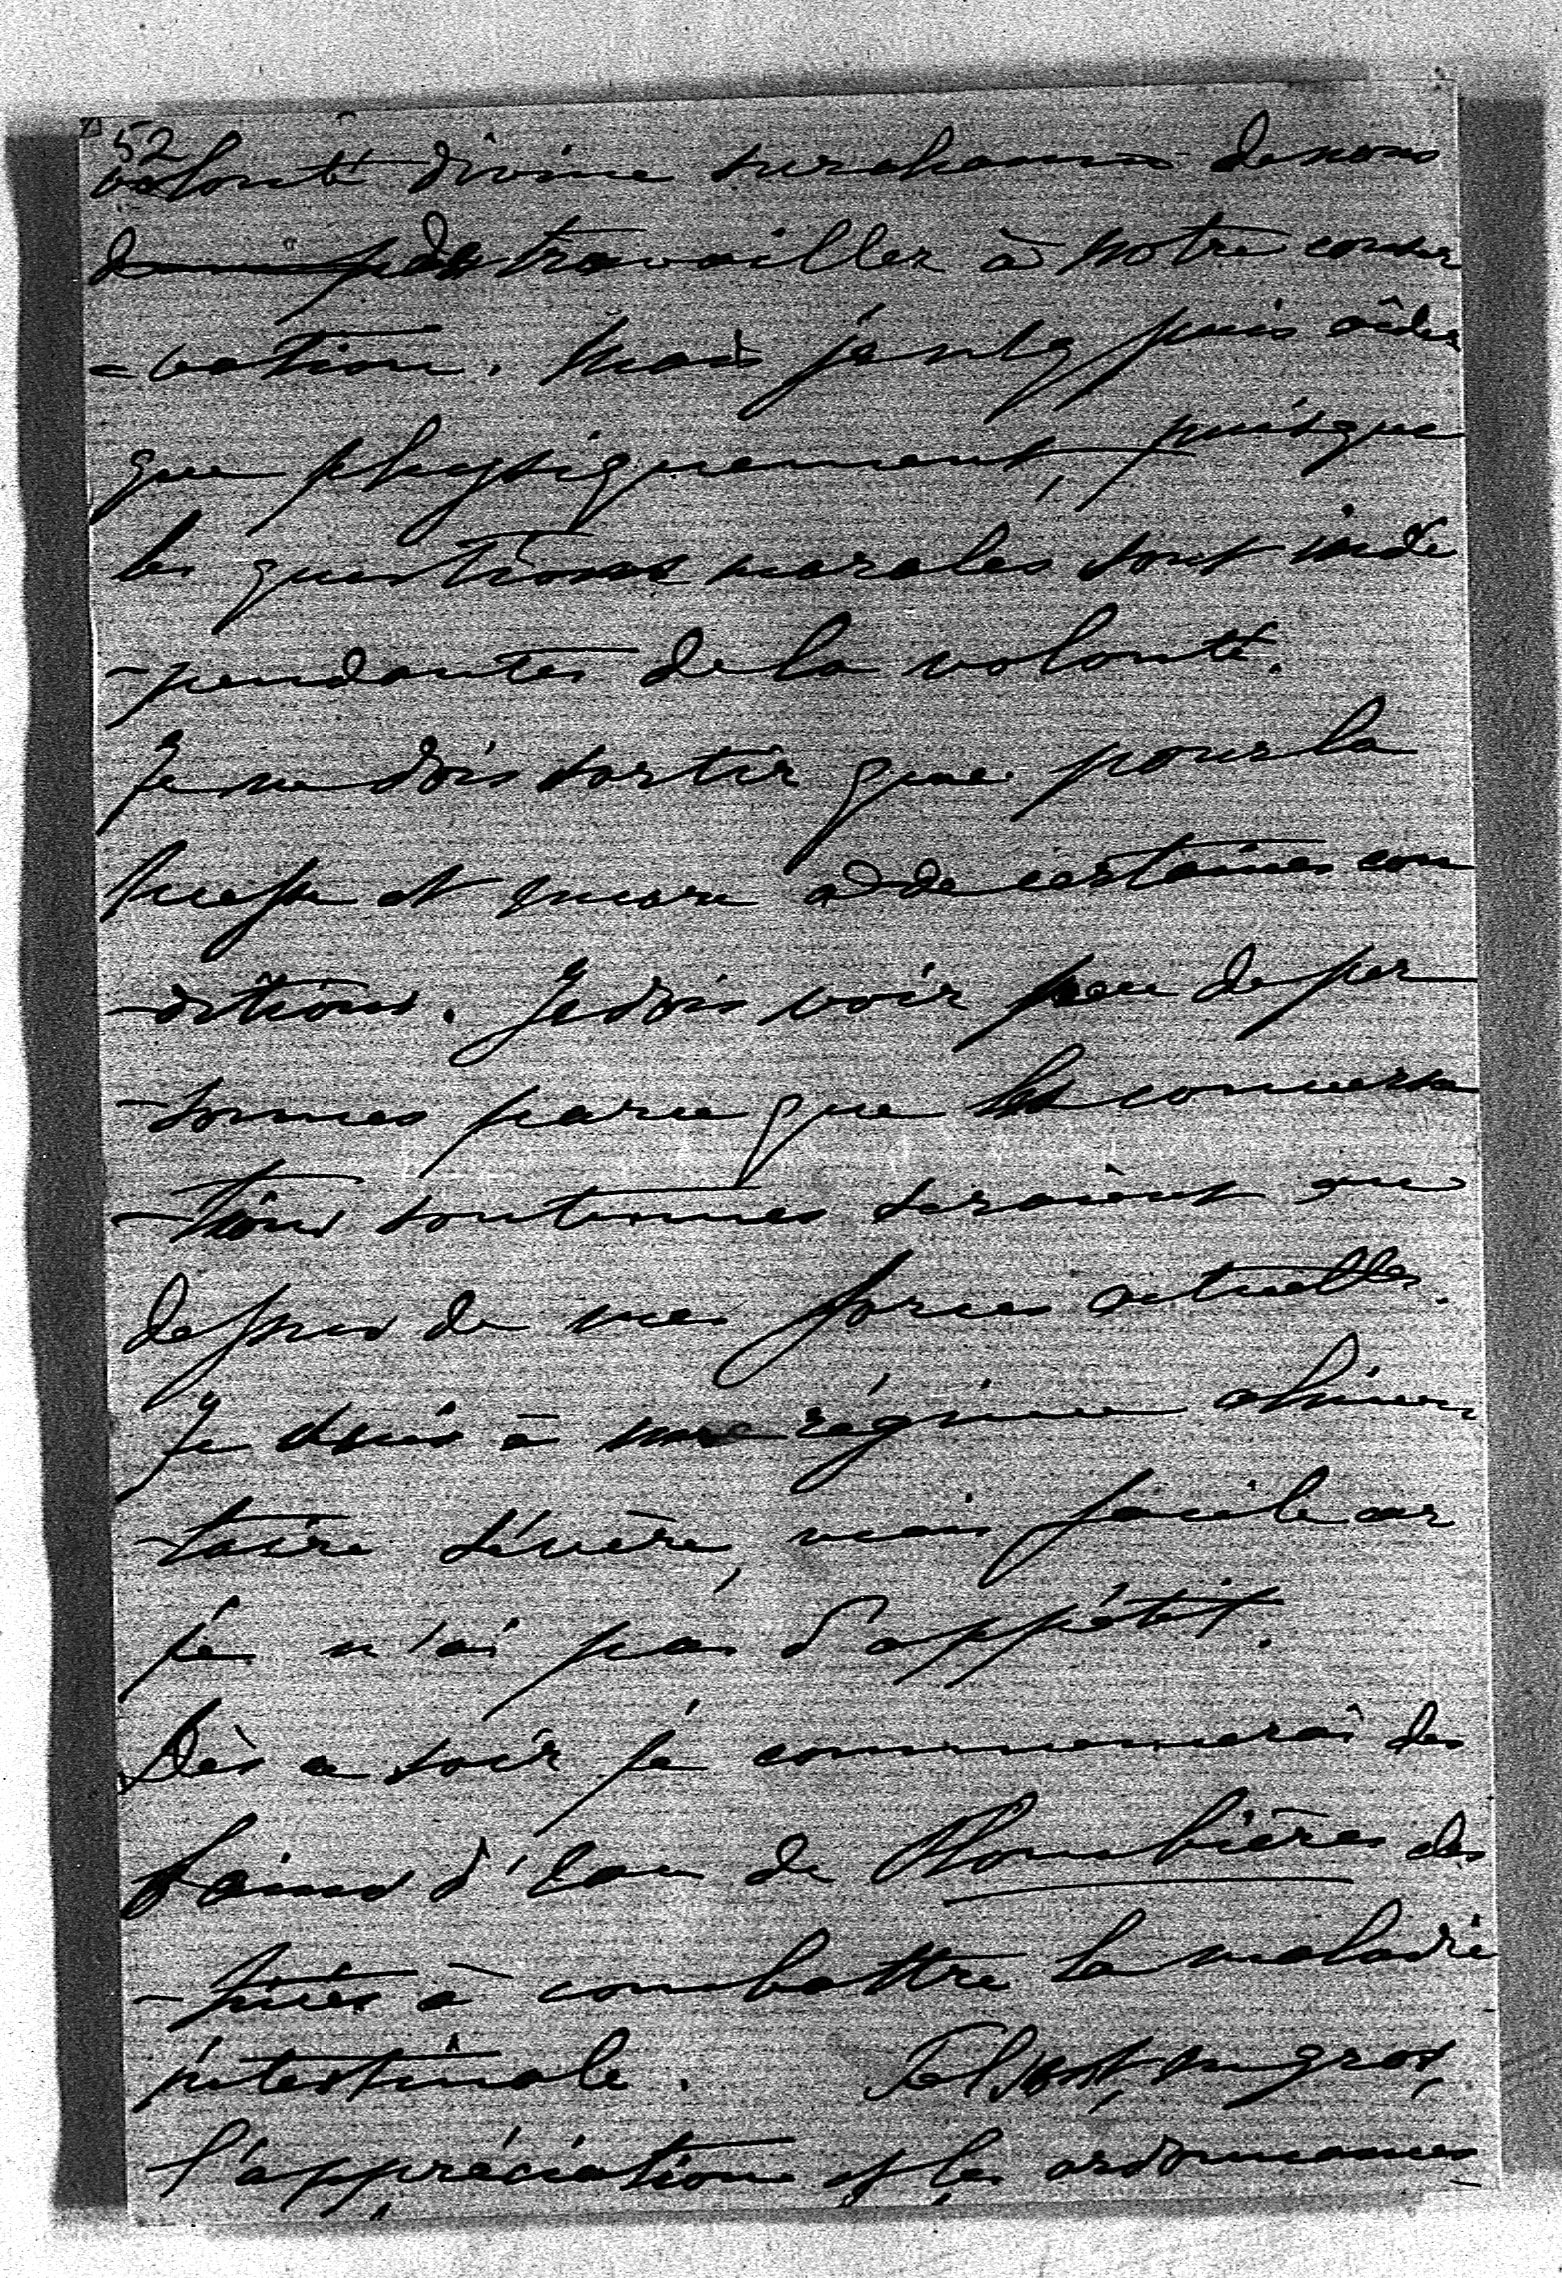 52
volonté divine sur chacun de nous
de travailler à notre conser
-vation. Mais je n'y puis aider
que physiquement, puisque
les questions morales sont indé
-pendantes de la volonté.
Je ne dois sortir que pour la
messe et encore à de certaines con
-ditions. Je dois voir peu de per
-sonnes parce que les conversa
-tions soutenues seraient au
dessus de mes forces actuelles.
Je suis à un régime alimen
-taire sévère, mais facile car
je n'ai pas d'appétit.
Dès ce soir je commencerai des
bains d'eau de Plombières des
-tinés à combattre la maladie
intestinale. Tel sont, en gros,
l'appréciation et les ordonnances